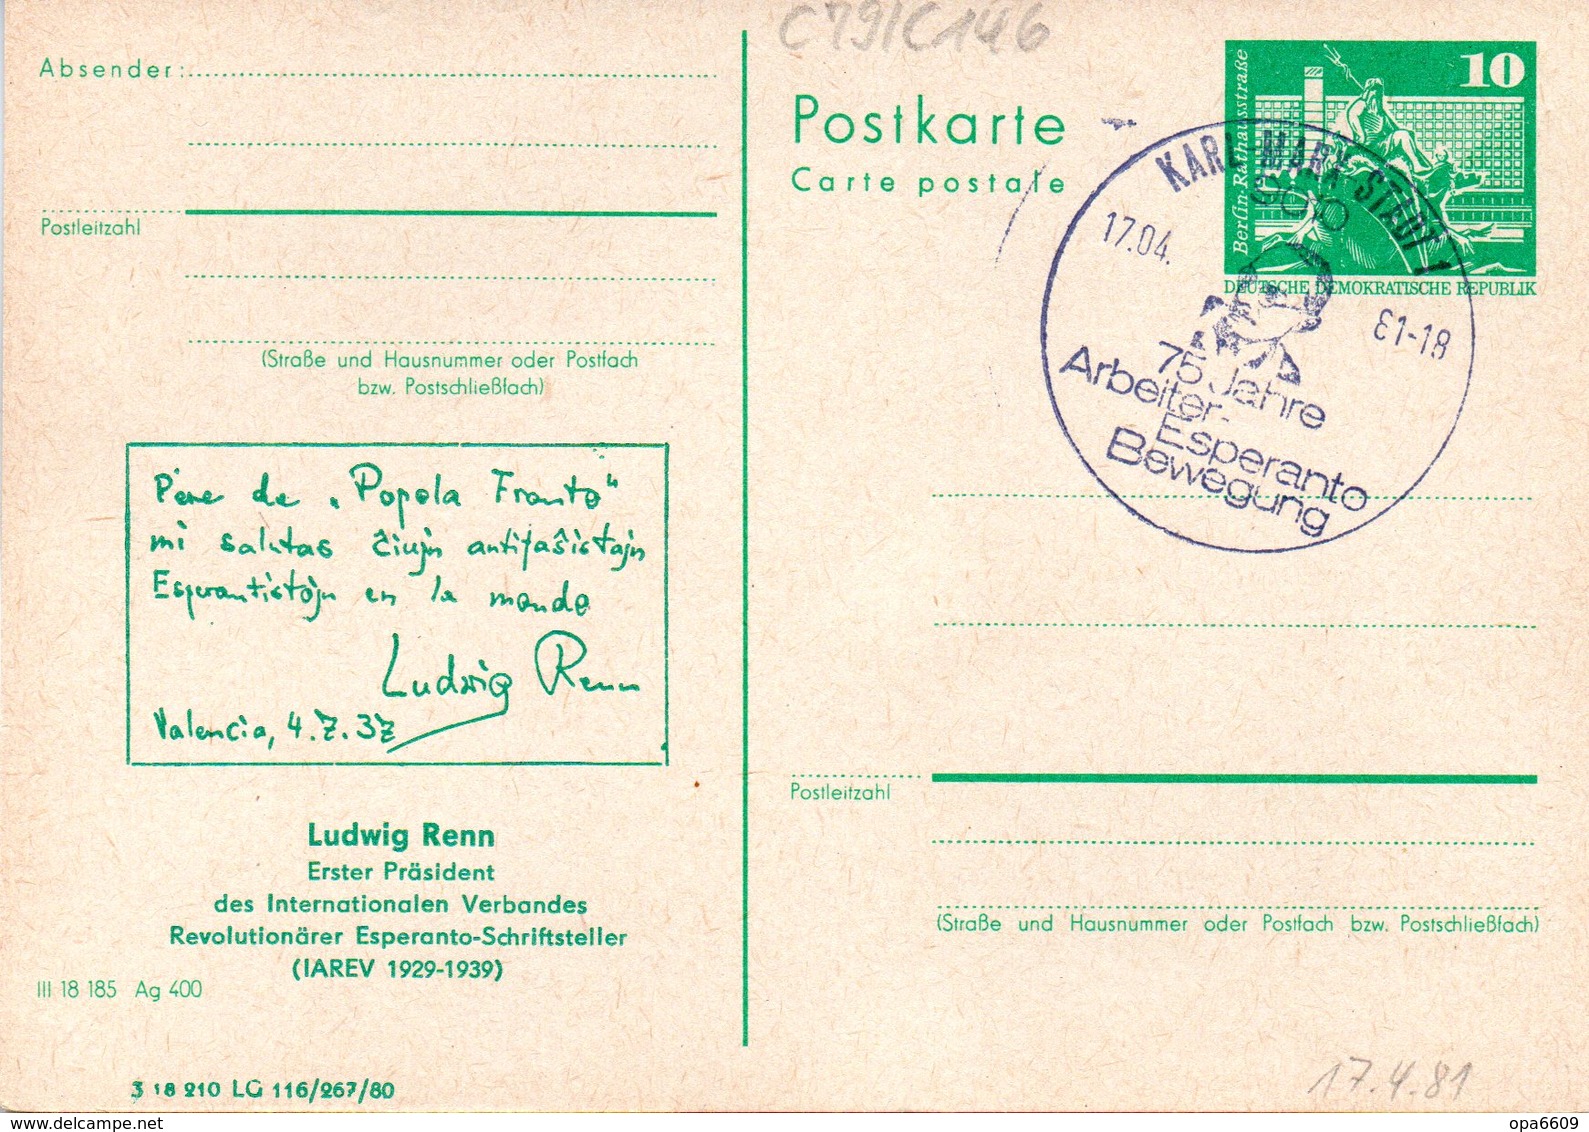 C79/C146
Absender:
Postleitzahl
(Straße und Hausnummer oder Postfach
bzw. Postschließfach)
Pere de „Popola Fronto"
mi salutas ĉiujn antifaŝistajn
Esperantistojn en la mondo
Ludwig Renn
Valencia, 4.7.37
Ludwig Renn
Erster Präsident
des Internationalen Verbandes
Revolutionärer Esperanto-Schriftsteller
(IAREV 1929-1939)
III 18 185 Ag 400
3 18 210 LG 116/267/80
Postkarte
Carte postale
10
Berlin-Rathausstraße
DEUTSCHE DEMOKRATISCHE REPUBLIK
KARL-MARX-STADT 1
9010
17.04.
81-18
75 Jahre
Arbeiter-
Esperanto
Bewegung
Postleitzahl
(Straße und Hausnummer oder Postfach bzw. Postschließfach)
17.4.81
delcampe.net
opa6609